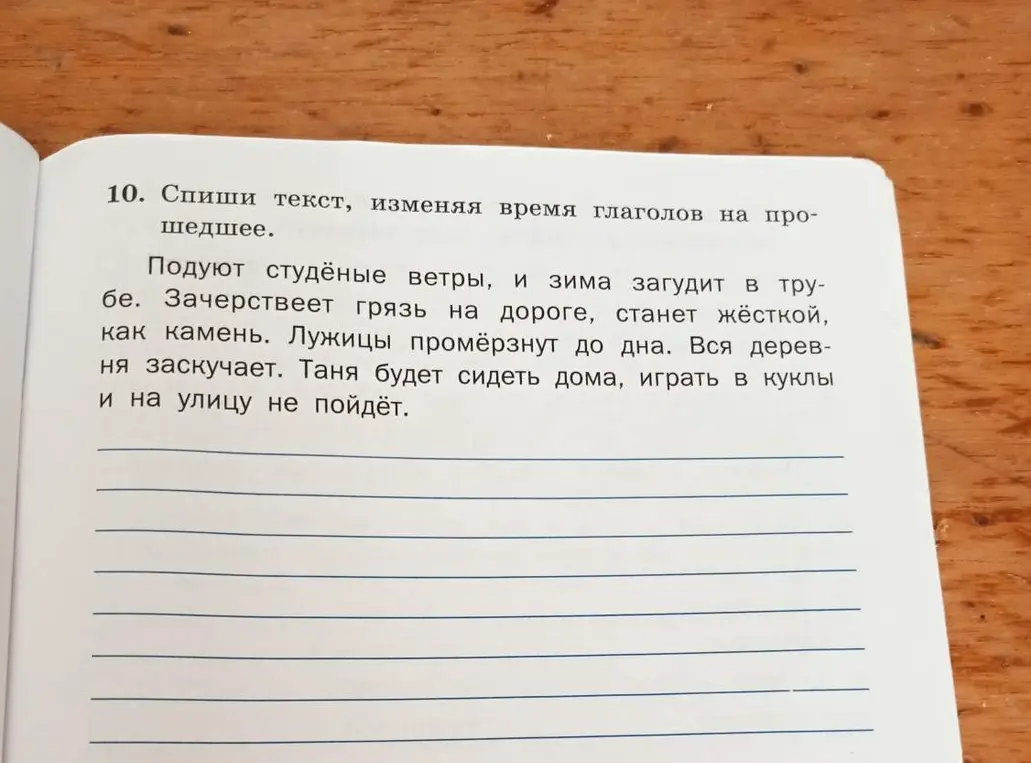 10. Спиши текст, изменяя время глаголов на про-
шедшее.
Подуют студёные ветры, и зима загудит в тру-
бе. Зачерствеет грязь на дороге, станет жёсткой,
как камень. Лужицы промёрзнут до дна. Вся дерев-
ня заскучает. Таня будет сидеть дома, играть в куклы
и на улицу не пойдёт.